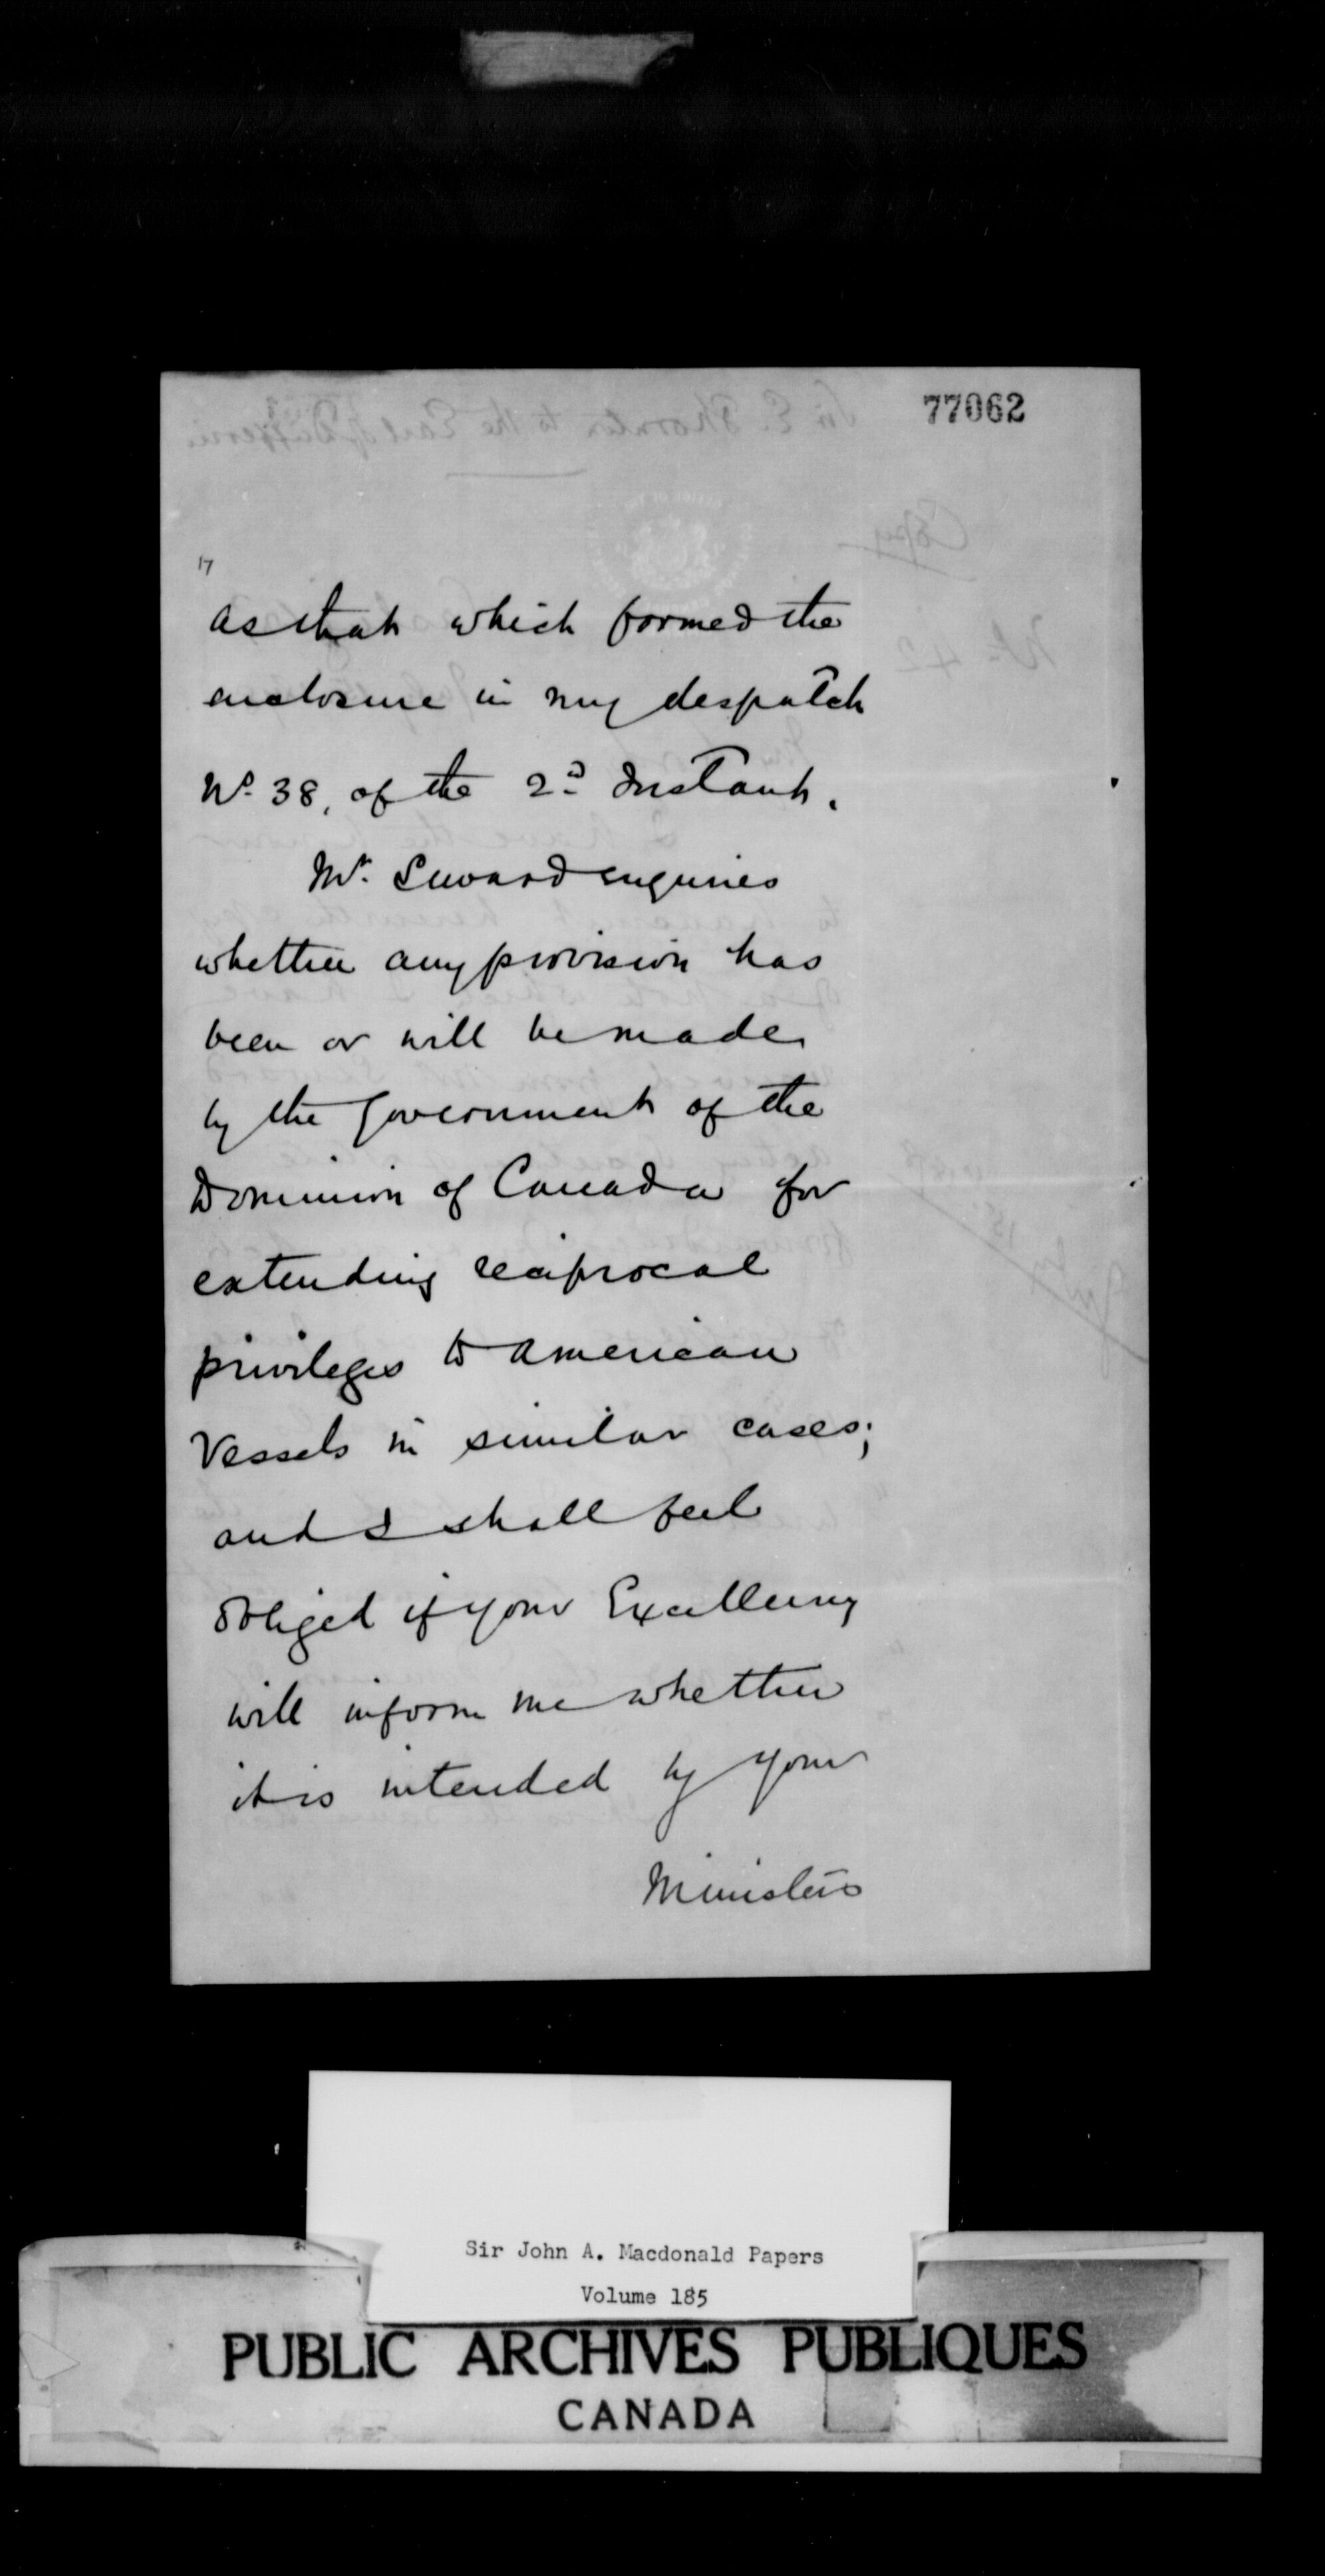 77062
17
as that which formed the
enclosure in my despatch
No. 38, of the 2d Instant.
Mr. Seward enquires
whether any provision has
been or will be made
by the Government of the
Dominion of Canada for
extending reciprocal
privileges to American
Vessels in similar cases;
and I shall feel
obliged if your Excellency
will inform me whether
it is intended by your
Ministers
Sir John A. Macdonald Papers
Volume 185
PUBLIC ARCHIVES PUBLIQUES
CANADA